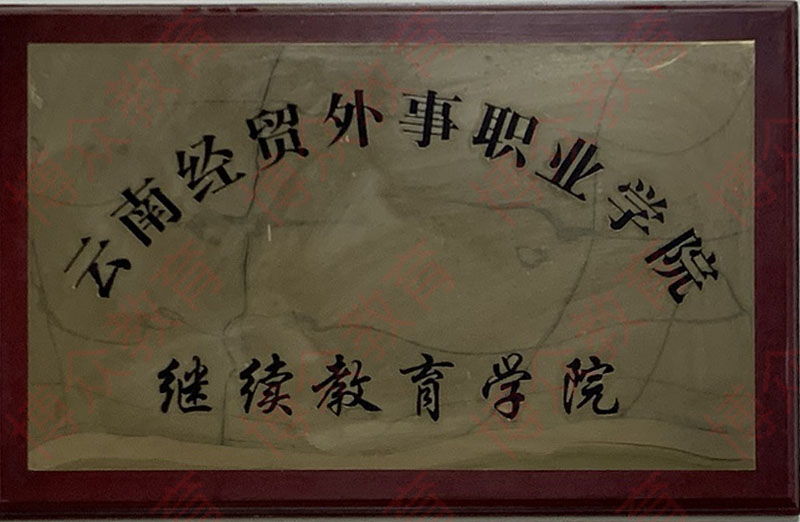 云南经贸外事职业学院
继续教育学院